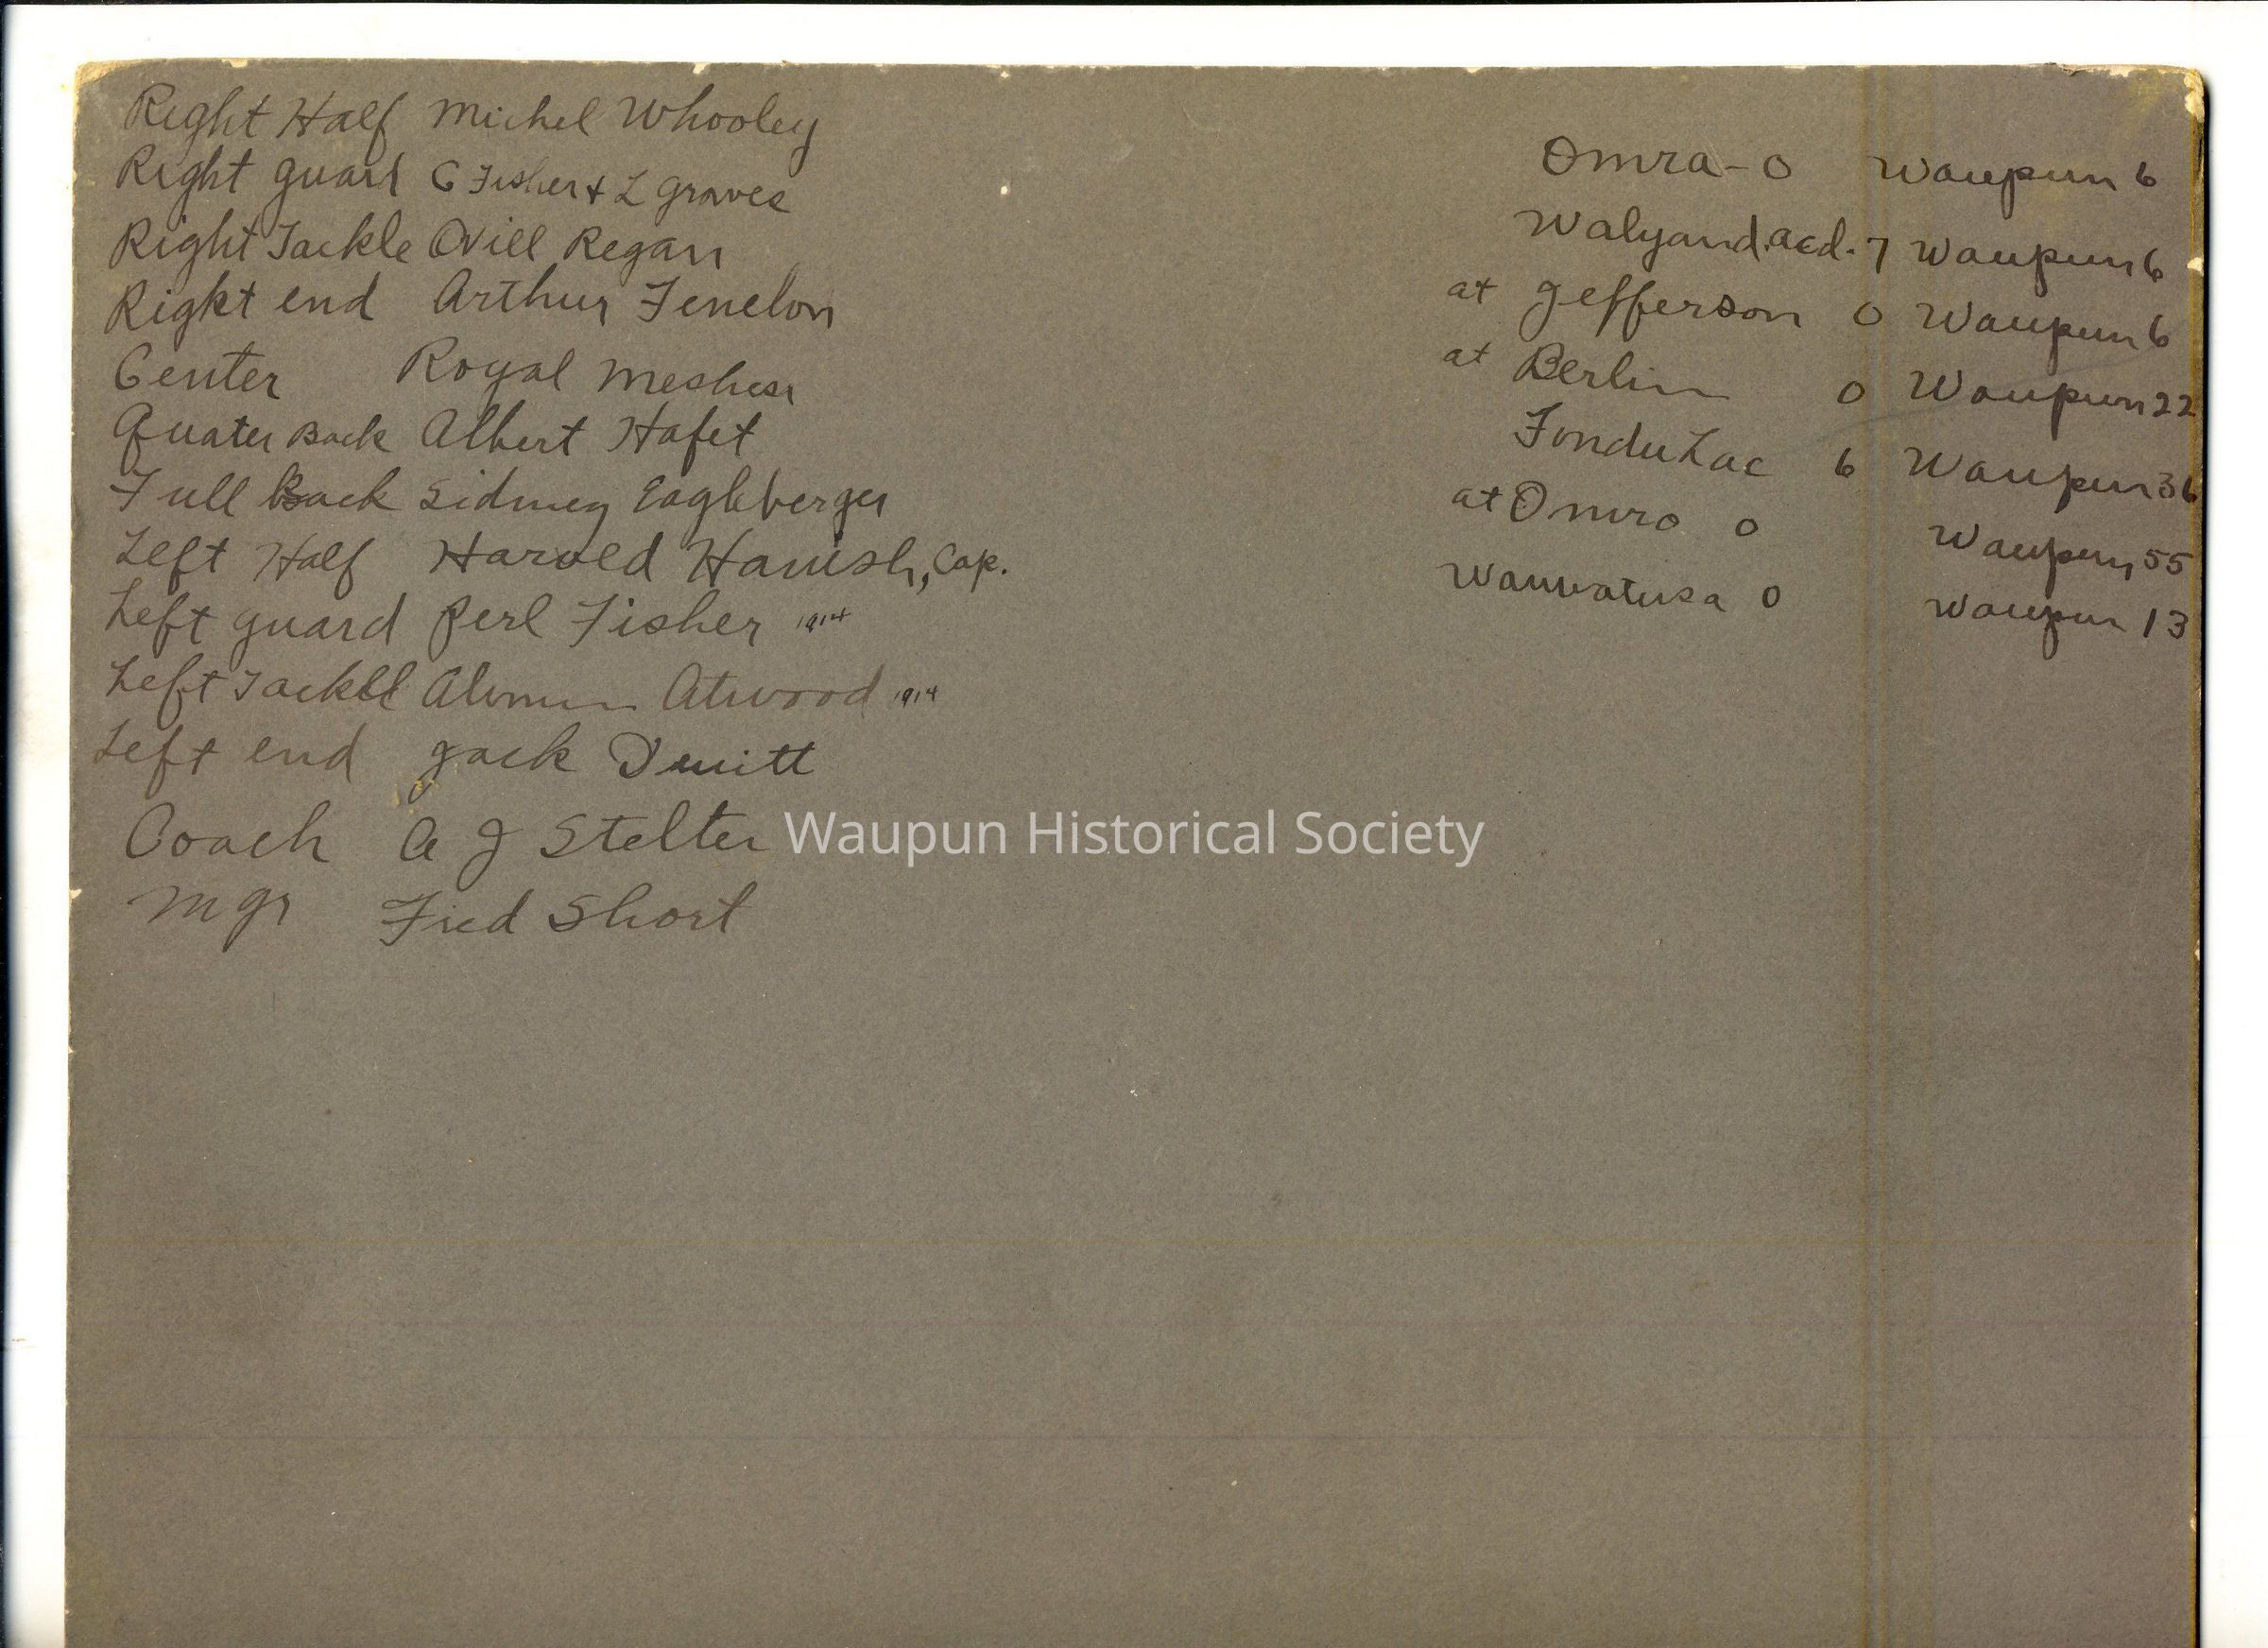 Right Half Michel Whooley
Right guard C Fisher & L graves
Right Tackle Ovill Regan
Right end Arthur Fenelon
Center Royal Mesheer
Quater Back Albert Hafet
Full Back Sidney Eagleberger
Left Half Harold Hanish, Cap.
Left guard Perl Fisher 1914
Left Tackle Atwood 1914
Left end Jack Dewitt
Coach A J Stelter
Mgr Fred Short
Omra - 0 Waupun 6
Walyand. acd. 7 Waupun 6
at Jefferson 0 Waupun 6
at Berlin 0 Waupun 22
Fondu Lac 6 Waupun 36
at Omro 0 Waupun 55
Wauwatusa 0 Waupun 13
Waupun Historical Society